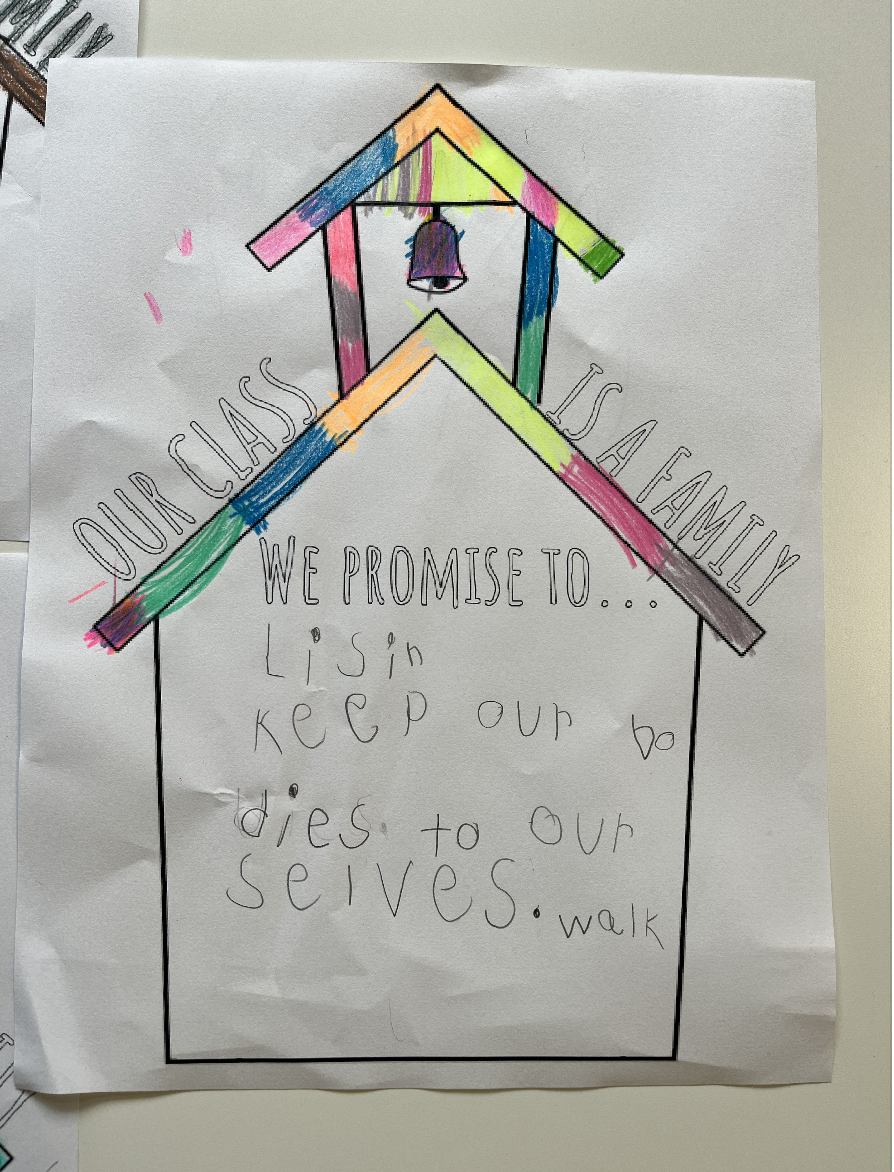 OUR CLASS IS A FAMILY
WE PROMISE TO...
Lisin
keep our bo
dies. to our
selves. walk